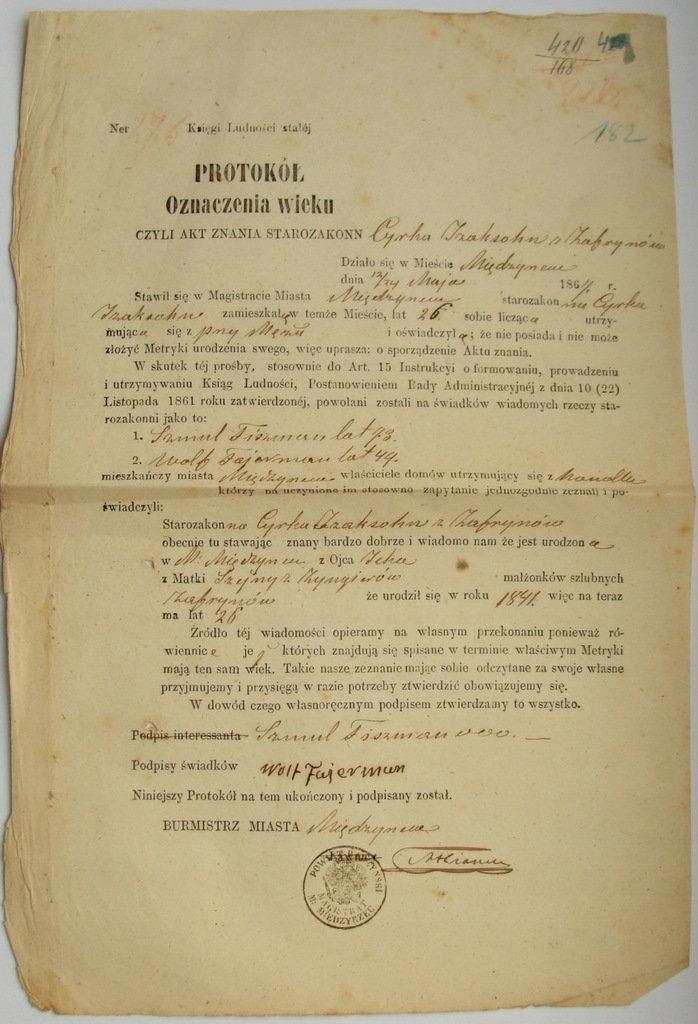 420
168
182
Ner 276 Księgi Ludności stałéj
PROTOKÓŁ
Oznaczenia wieku
CZYLI AKT ZNANIA STAROZAKONN Cyrka Izaksohn z Zafrynów
Działo się w Mieście Międzyrzecu
dnia 12/24 Maja 1867 r.
Stawił się w Magistracie Miasta Międzyrzecu starozakon na Cyrka
Izaksohn zamieszkała w temże Mieście, lat 26 sobie licząca utrzy-
mująca się z przy Mężu i oświadczyła; że nie posiada i nie może
złożyć Metryki urodzenia swego, więc uprasza: o sporządzenie Aktu znania.
W skutek téj prośby, stosownie do Art. 15 Instrukcyi o formowaniu, prowadzeniu
i utrzymywaniu Ksiąg Ludności, Postanowieniem Rady Administracyjnéj z dnia 10 (22)
Listopada 1861 roku zatwierdzonéj, powołani zostali na świadków wiadomych rzeczy sta-
rozakonni jako to:
1. Szmul Fiszman lat 73.
2. Wolf Fajerman lat 49.
mieszkańcy miasta Międzyrzeca właściciele domów utrzymujący się z handlu
którzy na uczynione im stosowno zapytanie jednozgodnie zeznali i po-
świadczyli:
Starozakonna Cyrka Izaksohn z Zafrynów
obecnie tu stawając znany bardzo dobrze i wiadomo nam że jest urodzona
w M. Międzyrzecu z Ojca Icka
z Matki Szejny z małżonków szlubnych
Zafrynów że urodził się w roku 1841. więc na teraz
ma lat 26
Źródło téj wiadomości opieramy na własnym przekonaniu ponieważ ró-
wiennice jej których znajdują się spisane w terminie właściwym Metryki
mają ten sam wiek. Takie nasze zeznanie mając sobie odczytane za swoje własne
przyjmujemy i przysięgą w razie potrzeby ztwierdzić obowiązujemy się.
W dowód czego własnoręcznym podpisem ztwierdzamy to wszystko.
Podpis interessanta Szmul Fiszman ooo. —
Podpisy świadków Wolf Fajerman
Niniejszy Protokół na tem ukończony i podpisany został.
BURMISTRZ MIASTA Międzyrzeca
POWIAT RADZYŃSKI
MAGISTRAT
M. MIĘDZYRZEC